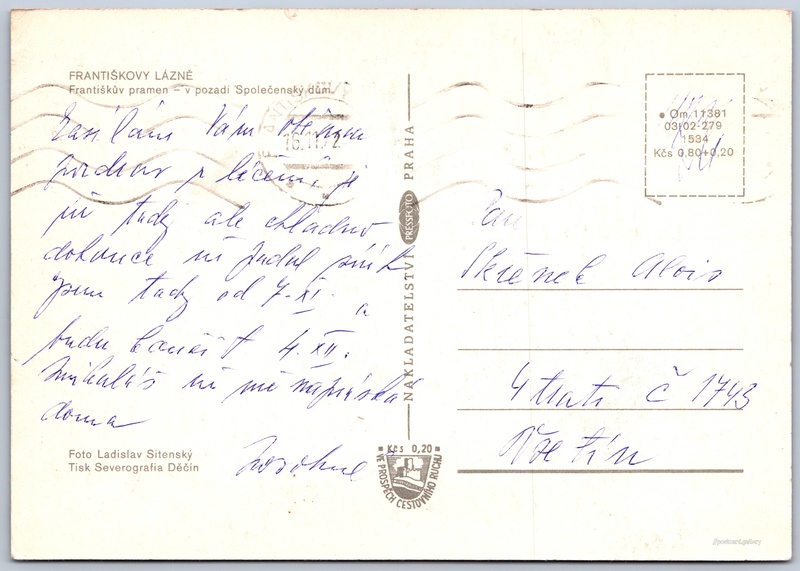 FRANTIŠKOVY LÁZNĚ
Františkův pramen – v pozadí Společenský dům.
Zasílám Vám
pozdrav z léčení je
již tady ale chladno
dokonce už padal sníh
jsem tady od 7.XI. a
budu končit 4.XII.
Mikuláš už mě
doma
Foto Ladislav Sitenský
Tisk Severografia Děčín
NAKLADATELSTVÍ PRESSFOTO PRAHA
Kčs 0,20
VE PROSPĚCH CESTOVNÍHO RUCHU
Øm 11381
03/02-279
1534
Kčs 0,80+0,20
Pan
Skřenek Alois
U trati č 1743
Vsetín
@postcard.gallery